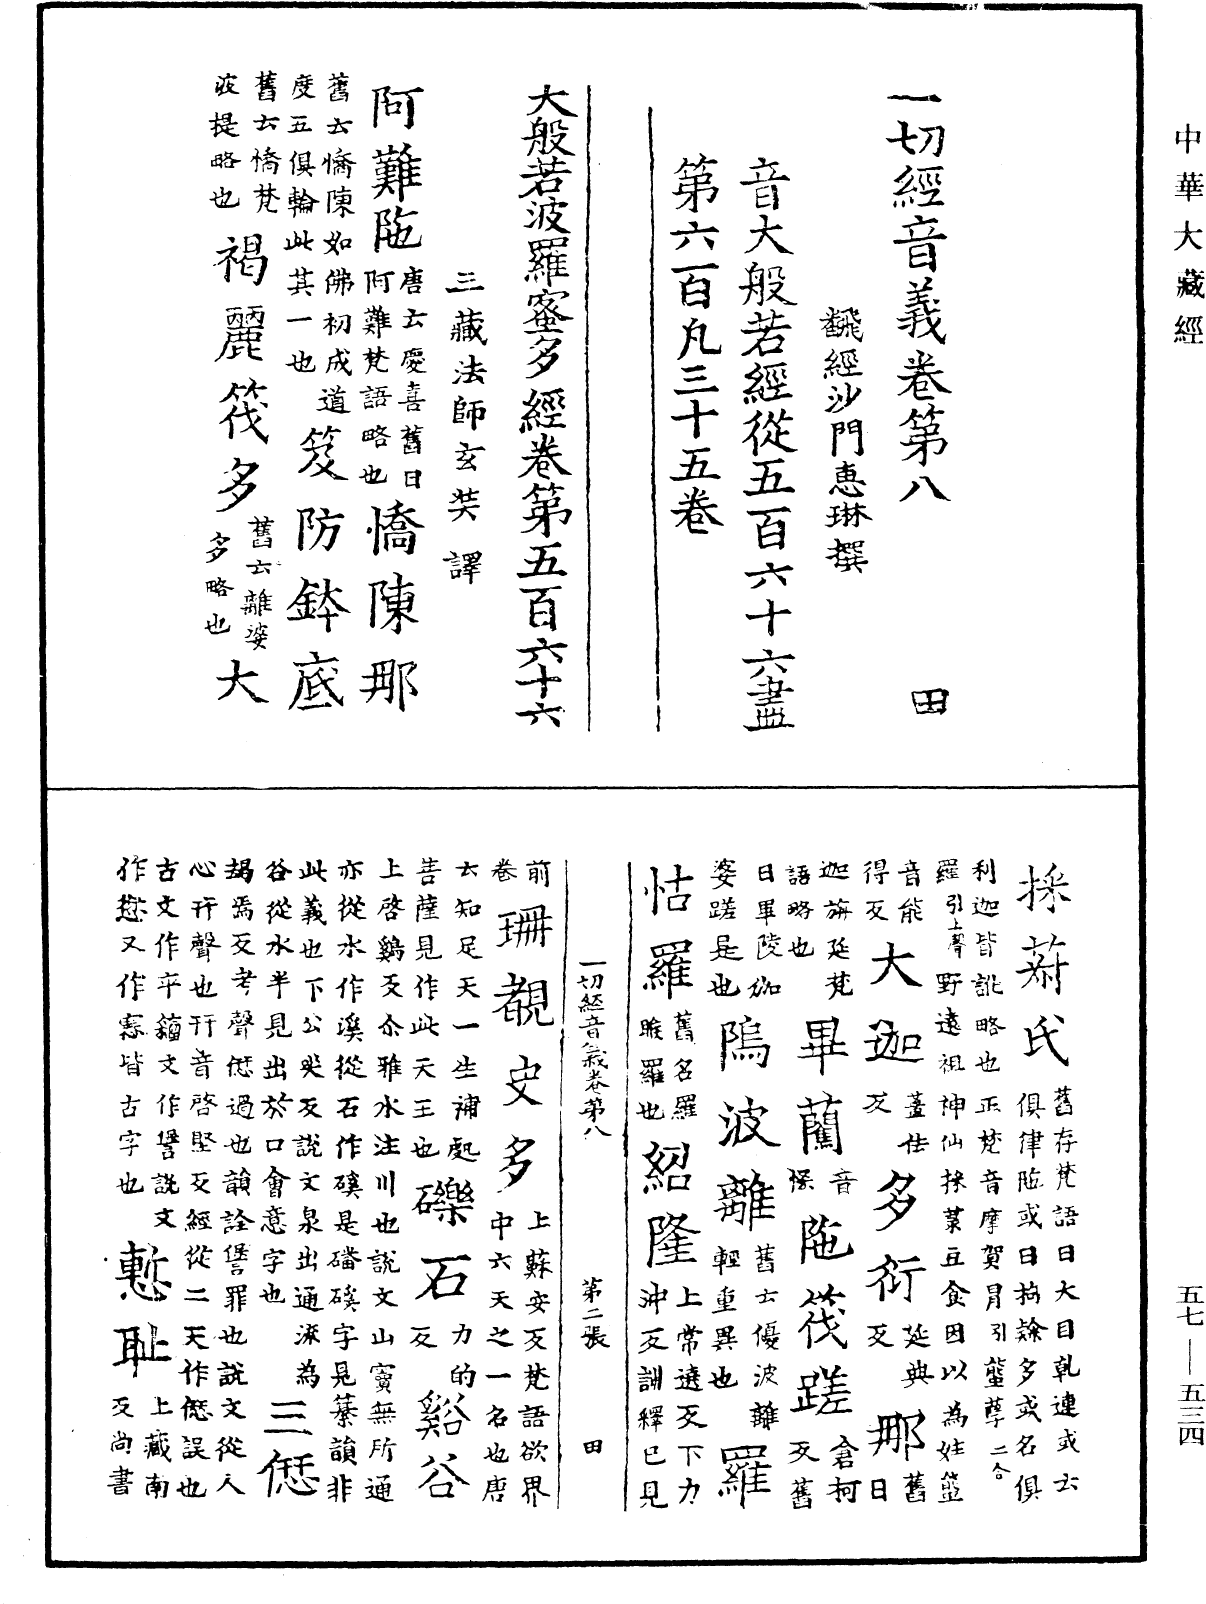 中華大藏經
一切經音義卷第八 田
飜經沙門惠琳撰
音大般若經從五百六十六盡
第六百凡三十五卷
大般若波羅蜜多經卷第五百六十六
三藏法師玄奘 譯
阿難陁唐云慶喜舊曰阿難梵語略也憍陳那
舊云憍陳如佛初成道度五俱輪此其一也笈防鉢底
舊云憍梵波提略也褐麗筏多舊云離婆多略也大
採菽氏舊存梵語曰大目乹連或云俱律陁或曰拘隸多或名俱
利迦皆訛略也正梵音摩賀冐引蠥孽二合
羅引上聲野遠祖神仙採菉豆食因以為姓
音能得反大迦薑佉反多衍延典反那舊曰
迦旃延梵語略也畢藺音陁筏蹉倉柯反舊
曰畢陵伽婆蹉是也隖波離舊云優波離輕重異也羅
怙羅舊名羅睺羅也紹隆上常遶反下力沖反訓釋已見
一切經音義卷第八 第二張 田
前卷珊覩史多上蘇安反梵語欲界中六天之一名也唐
云知足天一生補處菩薩見作此天王也礫石力的反谿谷
上啓鷄反尒雅水注川也說文山竇無所通
亦從水作溪從石作磎是磻磎字見纂韻非
此義也下公哭反說文泉出通流為
谷從水半見出於口會意字也三愆
朅焉反考聲愆過也韻詮諐罪也說文從人
心幵聲也幵音啓堅反經從二天作僁誤也
古文作㐸籀文作諐說文
作𠎝又作𢝊皆古字也慙耻上藏南反尚書
五七——五三四